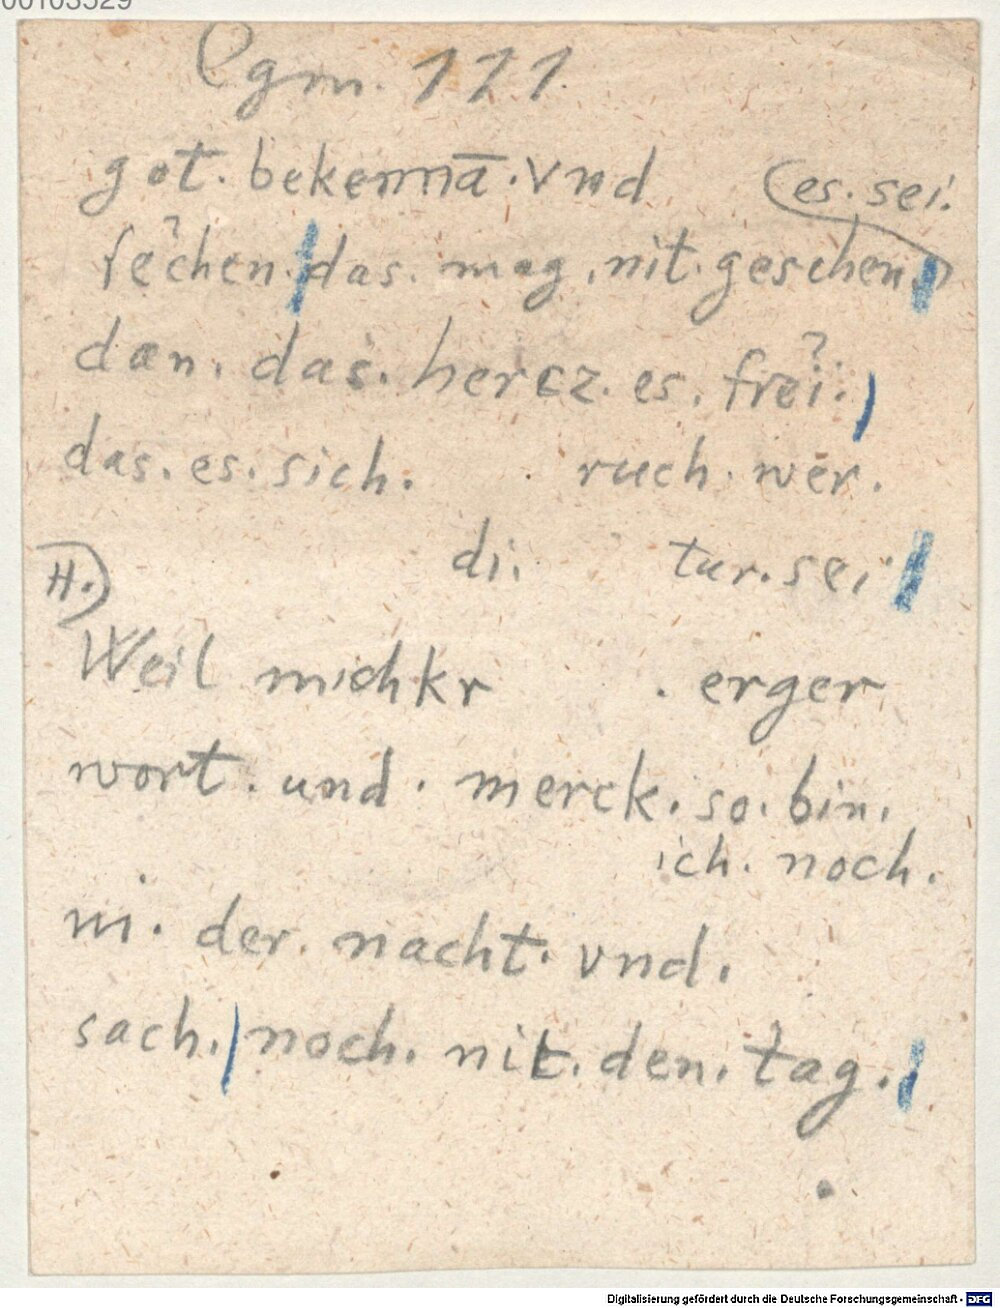 00103529
Cgm. 121.
got. bekennā. vnd (es. sei.
sechen. das. mag. nit. geschen.
dan. das. hercz. es. frei.
das. es. sich. . ruch. wer.
di. tur. sei
H.)
Weil mich kr . erger
wort. und. merck. so. bin.
ich. noch.
in. der. nacht. vnd.
sach. noch. nit. den. tag.
Digitalisierung gefördert durch die Deutsche Forschungsgemeinschaft - DFG